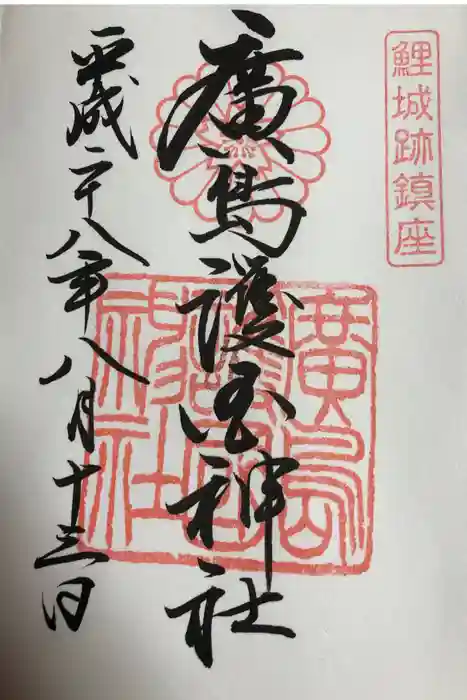 鯉城跡鎮座
廣島護国神社
平成二十八年八月十三日
廣島
護國
神社